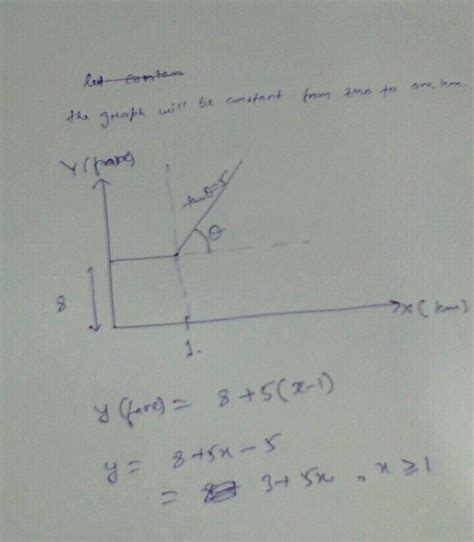 the graph will be constant from zero to one km.
Y (fare)
tanθ=5
θ
8
X (km)
1.
y (fare) = 8+5(x-1)
y = 8+5x-5
= 3+5x, x≥1